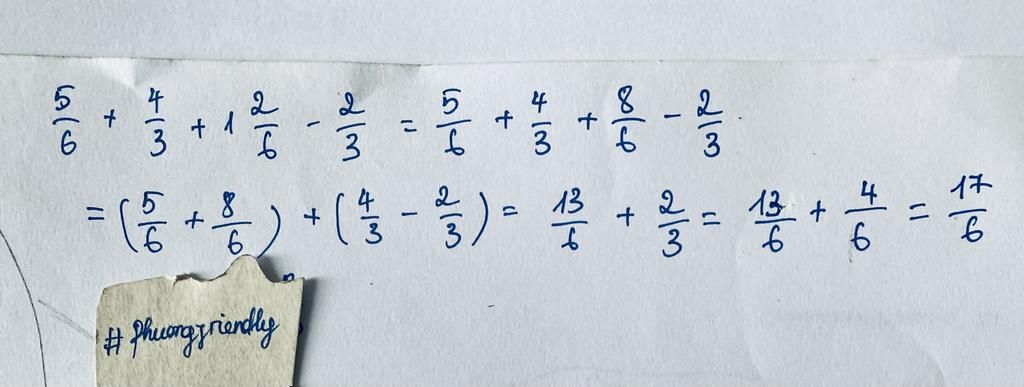 5/6 + 4/3 + 1 2/6 - 2/3 = 5/6 + 4/3 + 8/6 - 2/3
= (5/6 + 8/6) + (4/3 - 2/3) = 13/6 + 2/3 = 13/6 + 4/6 = 17/6
# phuongfriendly